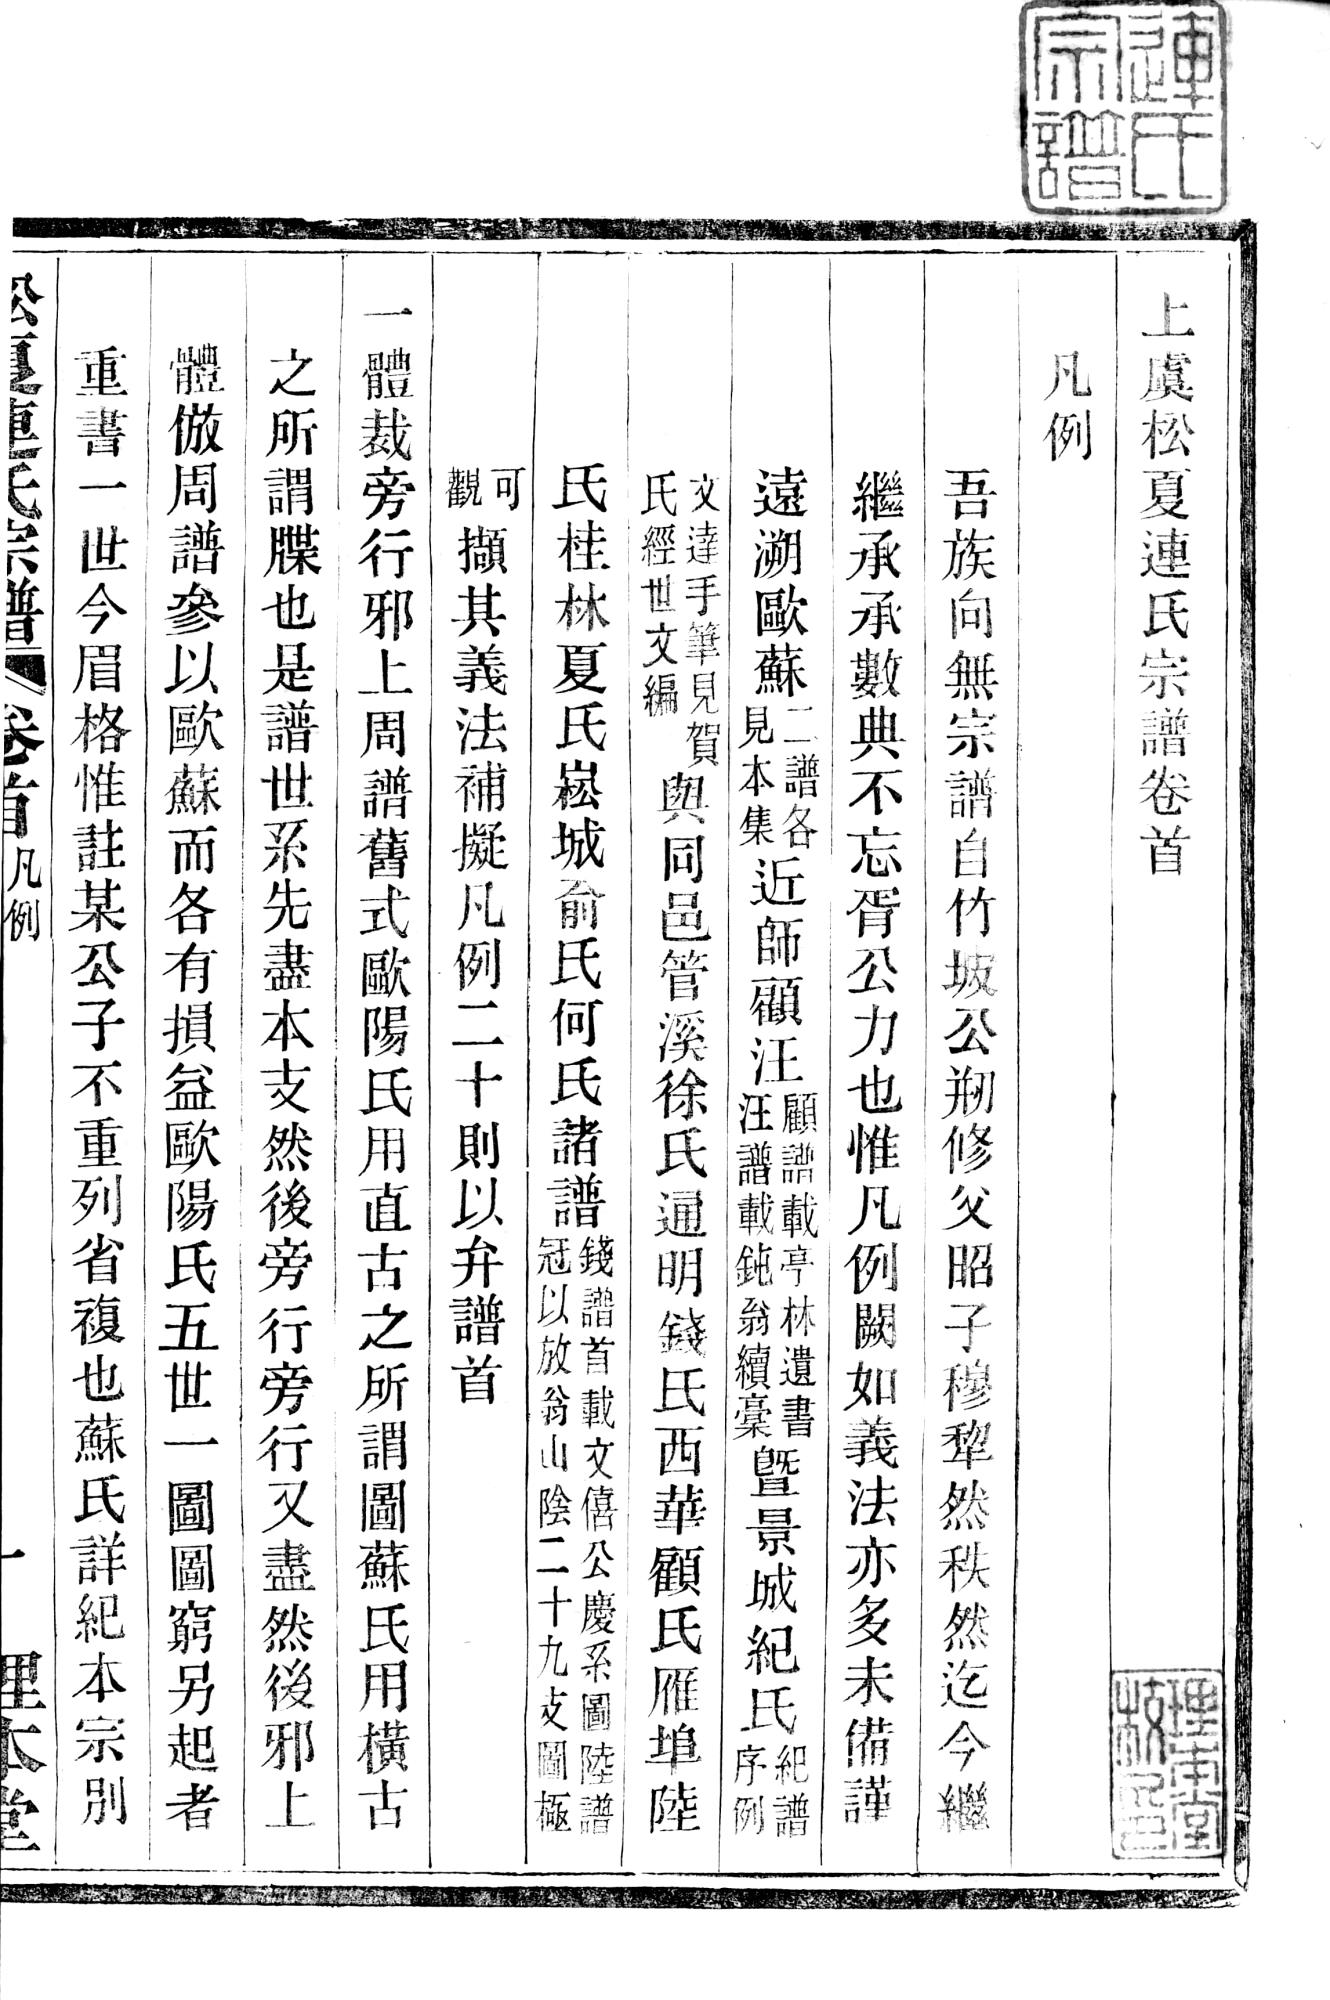 連氏宗譜
上虞松夏連氏宗譜卷首
凡例
吾族向無宗譜自竹坡公刱修父昭子穆犂然秩然迄今繼
繼承承數典不忘胥公力也惟凡例闕如義法亦多未備謹
遠溯歐蘇二譜各見本集近師顧汪顧譜載亭林遺書汪譜載鈍翁續稾曁景城紀氏紀譜序例
文達手筆見賀氏經世文編與同邑管溪徐氏通明錢氏西華顧氏雁埠陸
氏桂林夏氏崧城俞氏何氏諸譜錢譜首載文僖公慶系圖陸譜冠以放翁山陰二十九支圖極
可觀擷其義法補擬凡例二十則以弁譜首
一體裁旁行邪上周譜舊式歐陽氏用直古之所謂圖蘇氏用橫古
之所謂牒也是譜世系先盡本支然後旁行旁行又盡然後邪上
體倣周譜參以歐蘇而各有損益歐陽氏五世一圖圖窮另起者
重書一世今眉格惟註某公子不重列省複也蘇氏詳紀本宗別
松夏連氏宗譜 卷首 凡例 一 理本堂